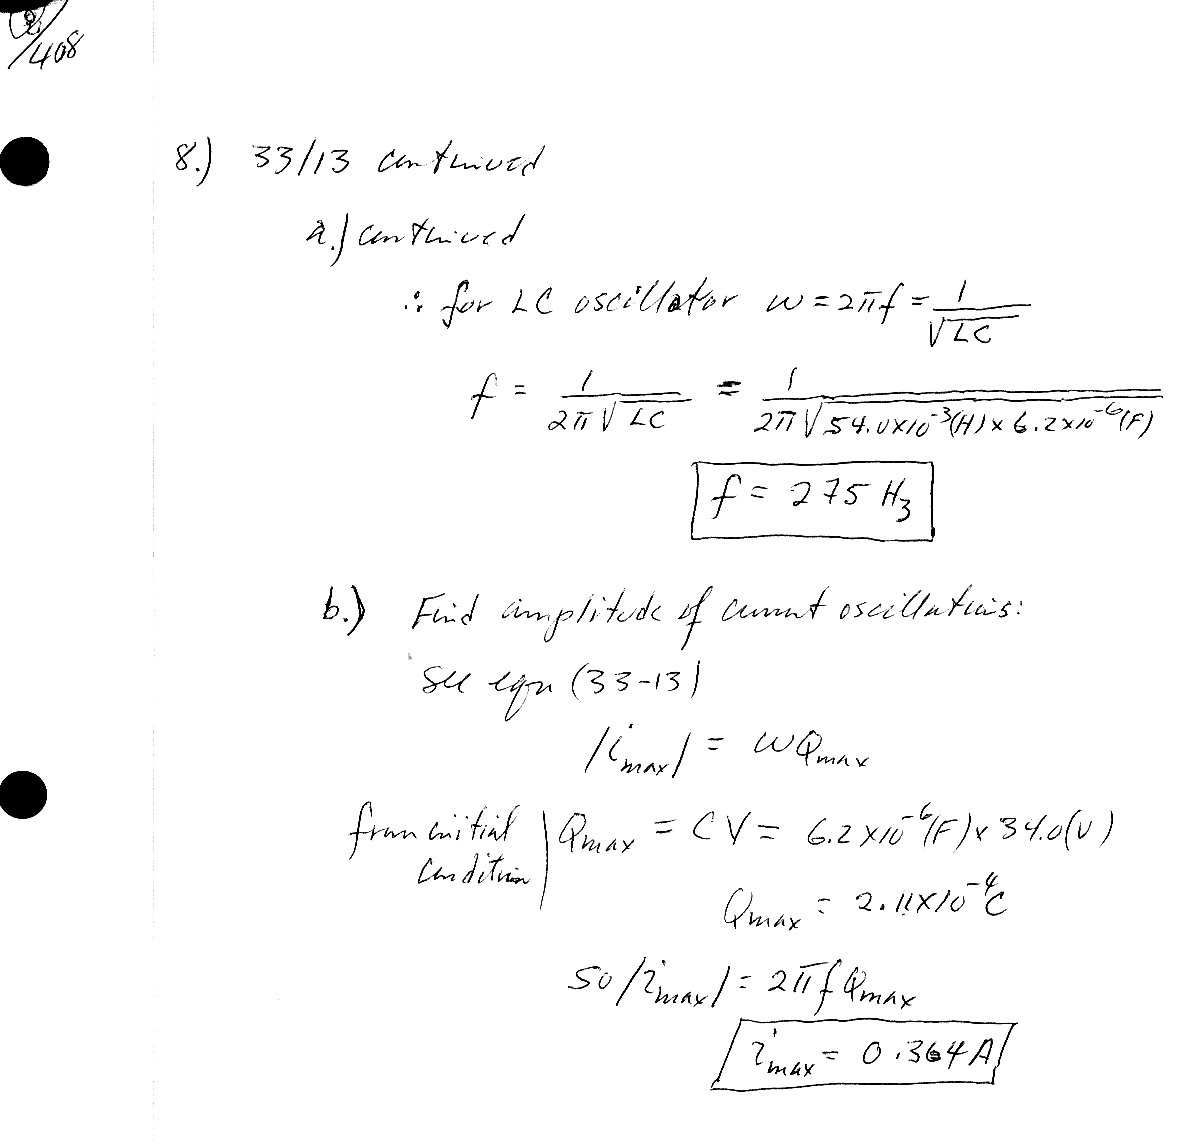 /408
8.) 33/13 continued
a.) continued
∴ for LC oscillator ω = 2πf = 1/√LC
f = 1/2π√LC = 1/2π√54.0×10⁻³(H)×6.2×10⁻⁶(F)
f = 275 Hz
b.) Find amplitude of current oscillations:
see eqn (33-13)
|i_max| = ωQ_max
from initial condition) Q_max = CV = 6.2×10⁻⁶(F)×34.0(V)
Q_max = 2.11×10⁻⁴C
so |i_max| = 2πf Q_max
i_max = 0.364A